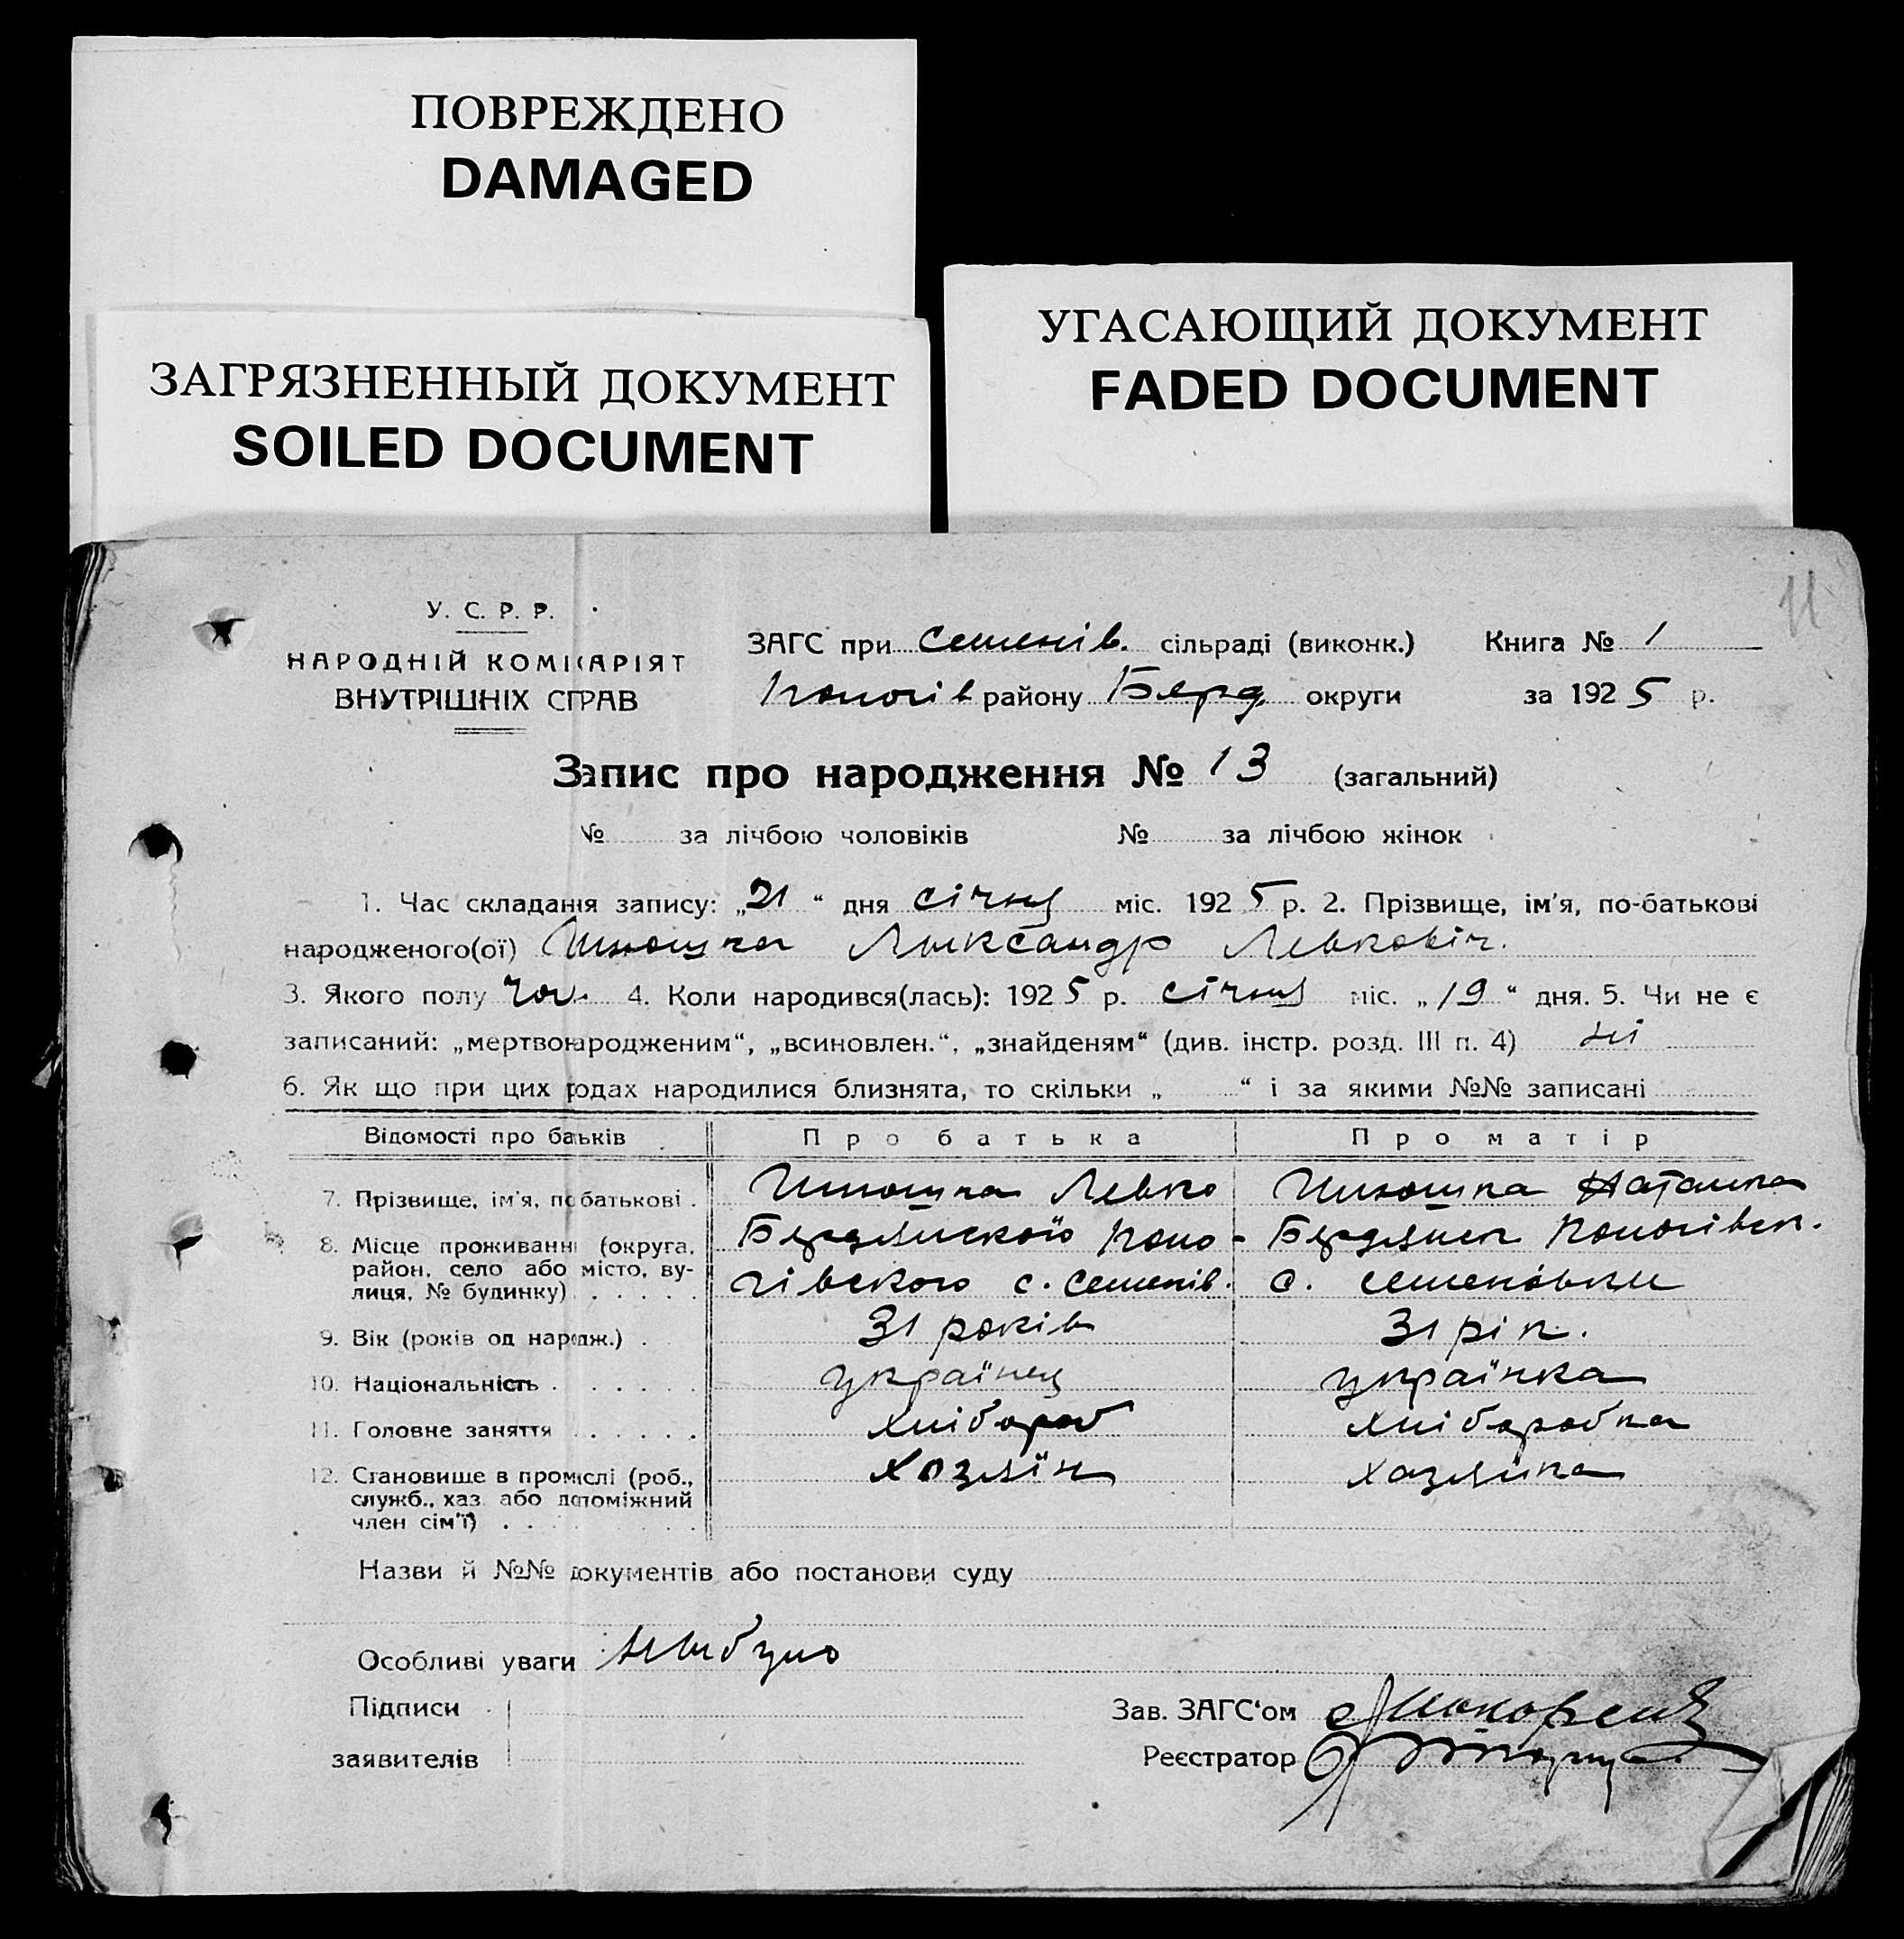 ПОВРЕЖДЕНО
DAMAGED
ЗАГРЯЗНЕННЫЙ ДОКУМЕНТ
SOILED DOCUMENT
УГАСАЮЩИЙ ДОКУМЕНТ
FADED DOCUMENT
11
У. С. Р. Р.
НАРОДНІЙ КОМІСАРІЯТ
ВНУТРІШНІХ СПРАВ
ЗАГС при Семенів. сільраді (виконк.) Книга № 1
Пологів району Берд. округи за 1925 р.
Запис про народження № 13 (загальний)
№ за лічбою чоловіків № за лічбою жінок
1. Час складання запису: „21“ дня січня міс. 1925 р. 2. Прізвище, ім'я, по-батькові
народженого(ої) Олександр Левковіч.
3. Якого полу чол. 4. Коли народився(лась): 1925 р. січня міс. „19“ дня. 5. Чи не є
записаний: „мертвонародженим“, „всиновлен.“, „знайденям“ (див. інстр. розд. III п. 4) ні
6. Як що при цих родах народилися близнята, то скільки „ “ і за якими №№ записані
Відомості про батьків Про батька Про матір
7. Прізвище, ім'я, по батькові . Левко Наталка
8. Місце проживання (округа, район, село або місто, вулиця, № будинку) . . . . . Бердянської Поло-
гівского с. Семенів. Бердянськ Пологівськ.
с. Семеновки
9. Вік (років од народж.) . 31 років 31 рік.
10. Національність . . . . . . українец українка
11. Головне заняття . . . . . хлібороб хліборобка
12. Становище в промислі (роб., служб., хаз. або допоміжний член сім'ї) . . . . хозяїн хазяйка
Назви й №№ документів або постанови суду
Особливі уваги не було
Підписи
заявителів
Зав. ЗАГС'ом
Реєстратор